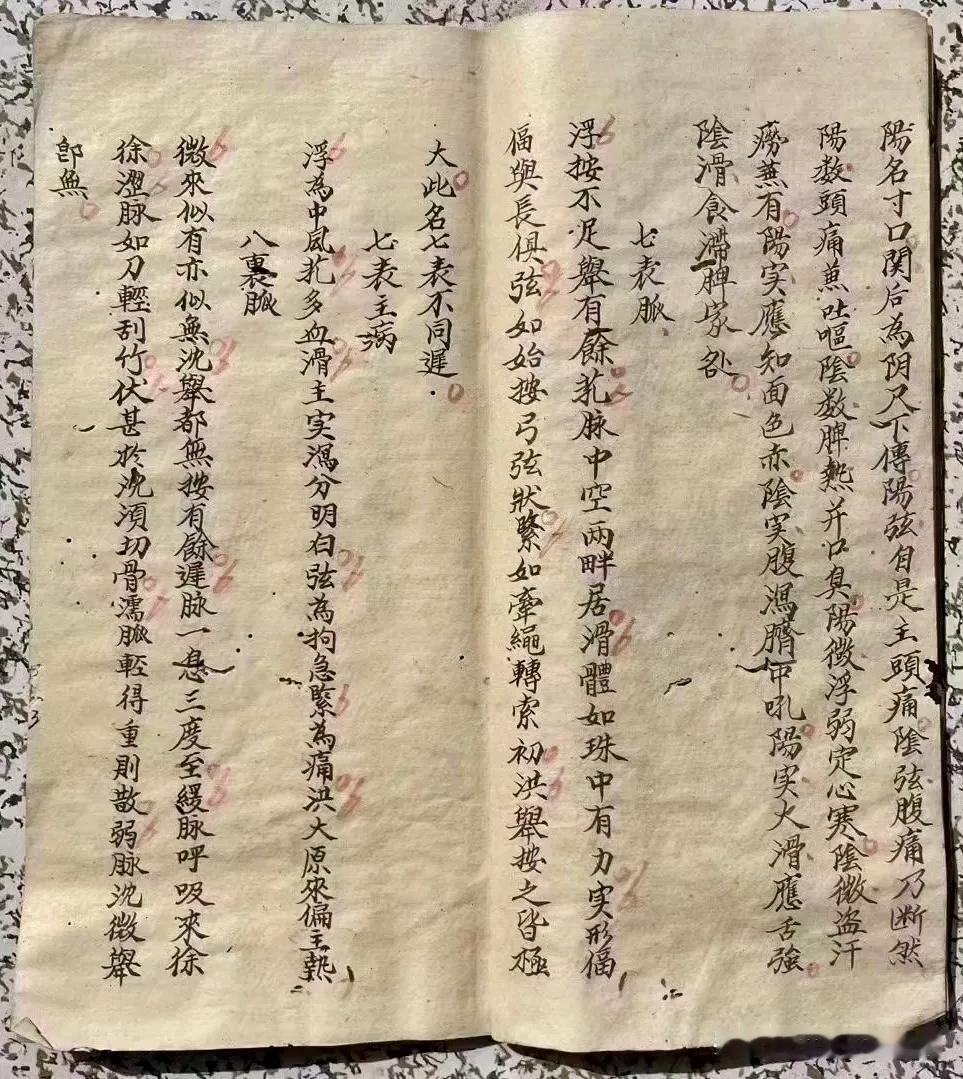 陽名寸口関后為阴尺下傳陽弦自是主頭痛陰弦腹痛乃断然
陽数頭痛蕪吐嘔陰数脾熱并口臭陽微浮弱定心寒陰微盗汗
癆蕪有陽実應知面色赤陰実腹瀉臍中吼陽実大滑應舌強
陰滑食滯脾家
七表脈
浮按不足舉有餘芤脉中空两畔居滑體如珠中有力实形偪
偪與長俱弦如始按弓弦狀緊如牽繩轉索初洪舉按之皆極
大此名七表不同遲
七表主病
浮為中風芤多血滑主实瀉分明白弦為拘急緊為痛洪大原來偏主熱
八裏脈
微來似有亦似無沈舉都無按有餘遲脉一息三度至緩脉呼吸來徐
徐澀脉如刀輕刮竹伏甚於沈須切骨濡脈輕得重則散弱脉沈微舉
卽無